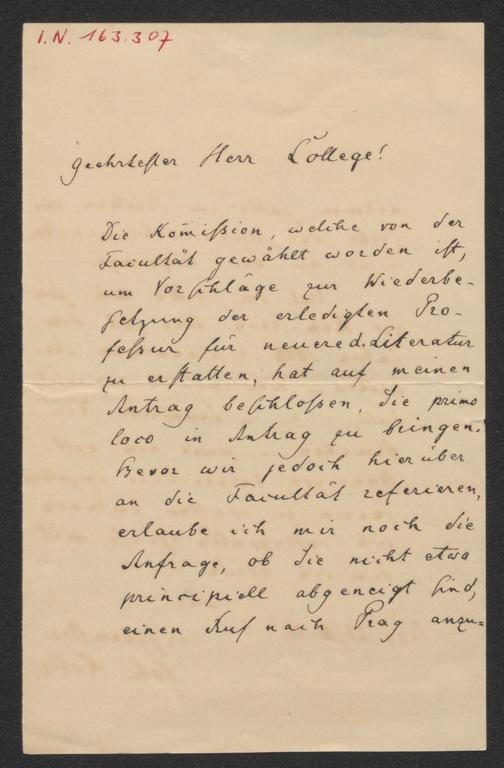 I.N. 163.307
Geehrtester Herr College!
Die Kom̅ißion, welche von der
Facultät gewählt worden ist,
um Vorschläge zur Wiederbe-
setzung der erledigten Pro-
feßur für neuere d. Literatur
zu erstatten, hat auf meinen
Antrag beschloßen, Sie primo
loco in Antrag zu bringen.
Bevor wir jedoch hierüber
an die Facultät referieren,
erlaube ich mir noch die
Anfrage, ob Sie nicht etwa
principiell abgeneigt sind,
einen Ruf nach Prag anzu=